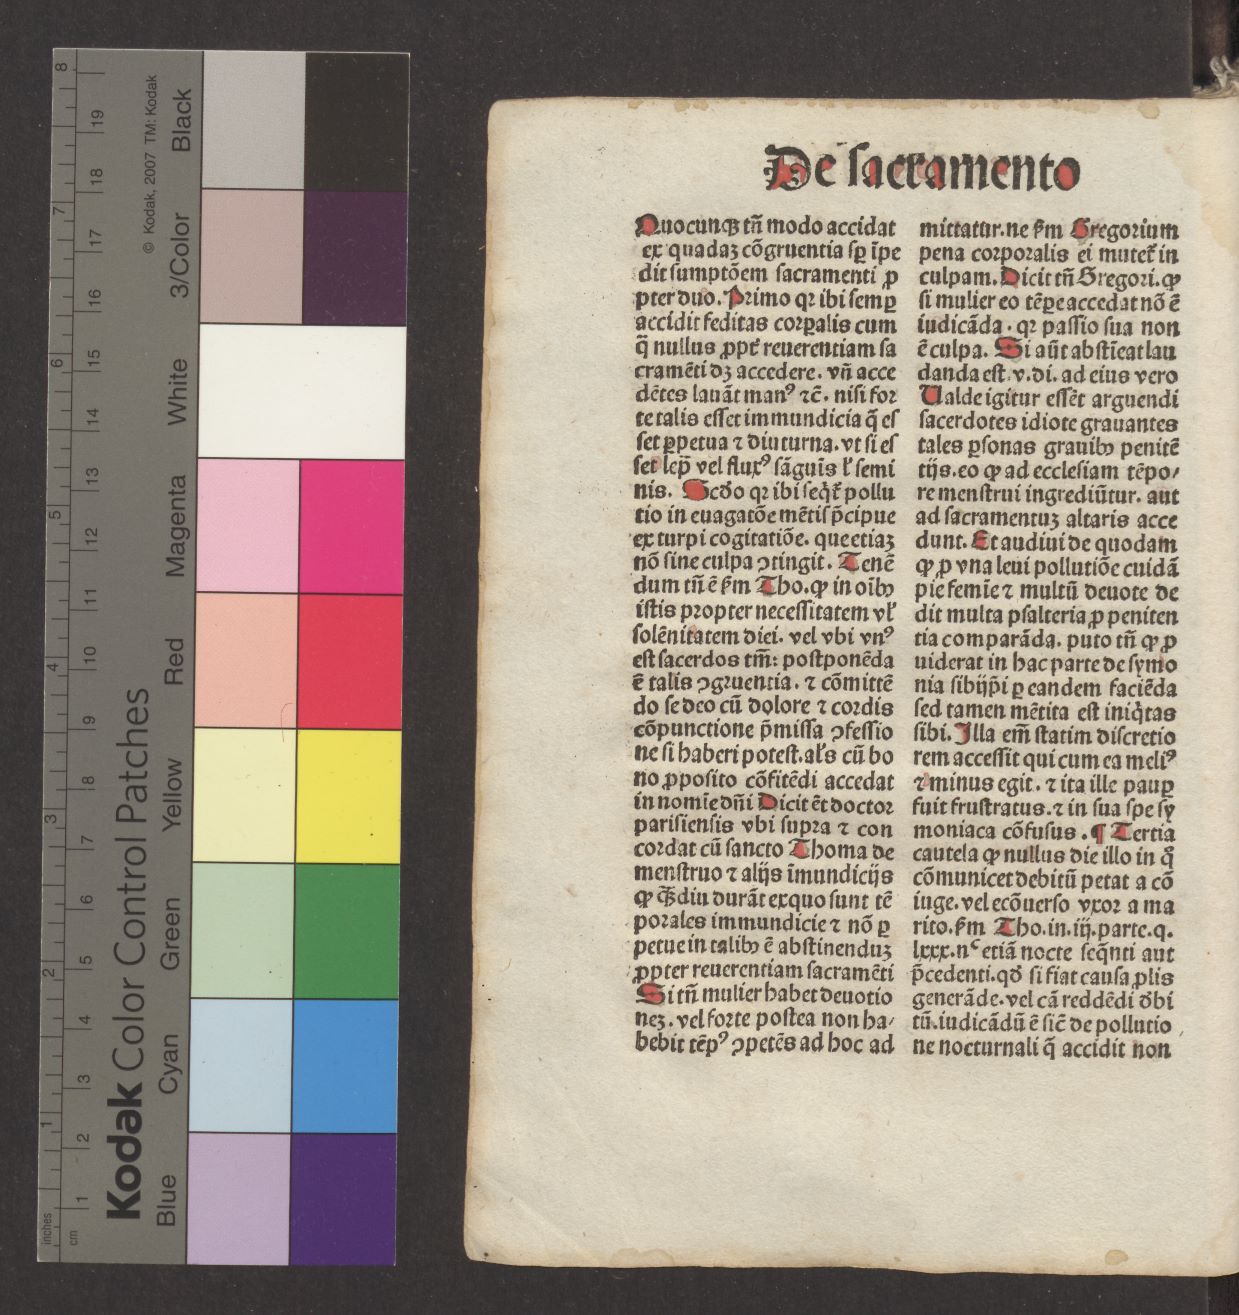 De sacramento
Quocunqꝫ tñ modo accidat
ex quadaꝫ cõgruentia sꝑ ĩpe
dit sumptõem sacramenti ꝓ
pter duo. Primo qꝛ ibi semꝑ
accidit feditas corꝑalis cum
q̃ nullus ꝓpt̃ reuerentiam sa
cramẽti dꝫ accedere. vñ acce
dẽtes lauãt manꝰ ⁊c̃. nisi for
te talis esset immundicia q̃ es
set ꝑpetua ⁊ diuturna. vt si es
set lep̃ vel fluxꝰ sãguĩs l̃ semi
nis. Scďo qꝛ ibi seq̃t̃ pollu
tio in euagatõe mẽtis p̃cipue
ex turpi cogitatiõe. que etiaꝫ
nõ sine culpa ꝯtingit. Tenẽ
dum tñ ẽ ẜm Tho. ꝙ in oĩbꝰ
istis propter necessitatem vl̃
solẽnitatem diei. vel vbi vnꝰ
est sacerdos tm̃: postponẽda
ẽ talis ꝯgruentia. ⁊ cõmittẽ
do se deo cũ dolore ⁊ cordis
cõpunctione p̃missa ꝯfessio
ne si haberi potest. al's cũ bo
no ꝓposito cõfitẽdi accedat
in nomĩe dñi Dicit ẽt doctor
parisiensis vbi supra ⁊ con
cordat cũ sancto Thoma de
menstruo ⁊ alijs ĩmundicijs
ꝙ q̃ꝫdiu durãt exquo sunt tẽ
porales immundicie ⁊ nõ ꝑ
petue in talibꝰ ẽ abstinenduꝫ
ꝓpter reuerentiam sacramẽti
Si tñ mulier habet deuotio
neꝫ. vel forte postea non ha⸗
bebit tẽpꝰ ꝯpetẽs ad hoc ad
mittatur. ne ẜm Gregorium
pena corporalis ei mutet̃ in
culpam. Dicit tñ Gregori. ꝙ
si mulier eo tẽpe accedat nõ ẽ
iudicãda. qꝛ passio sua non
ẽ culpa. Si aũt abstĩeat lau
danda est. v. di. ad eius vero
Ualde igitur essẽt arguendi
sacerdotes idiote grauantes
tales ꝑsonas grauibꝰ penitẽ
tijs. eo ꝙ ad ecclesiam tẽpo⸗
re menstrui ingrediũtur. aut
ad sacramentuꝫ altaris acce
dunt. Et audiui de quodam
ꝙ ꝓ vna leui pollutiõe cuidã
pie femĩe ⁊ multũ deuote de
dit multa psalteria ꝓ peniten
tia comparãda. puto tñ ꝙ ꝓ
uiderat in hac parte de symo
nia sibijp̃i ꝑ eandem faciẽda
sed tamen mẽtita est iniq̃tas
sibi. Illa em̃ statim discretio
rem accessit qui cum ea meliꝰ
⁊ minus egit. ⁊ ita ille pauꝑ
fuit frustratus. ⁊ in sua spe sy
moniaca cõfusus. ¶ Tertia
cautela ꝙ nullus die illo in q̃
cõmunicet debitũ petat a cõ
iuge. vel ecõuerso vxor a ma
rito. ẜm Tho. in. iij. parte. q.
lxxx. nᶜ etiã nocte seq̃nti aut
p̃cedenti. qď si fiat causa ꝓlis
generãde. vel cã reddẽdi ďbi
tũ. iudicãdũ ẽ sic̃ de pollutio
ne nocturnali q̃ accidit non
Kodak Color Control Patches
© Kodak, 2007 TM: Kodak
Blue Cyan Green Yellow Red Magenta White 3/Color Black
inches 1 2 3 4 5 6 7 8
cm 1 2 3 4 5 6 7 8 9 10 11 12 13 14 15 16 17 18 19